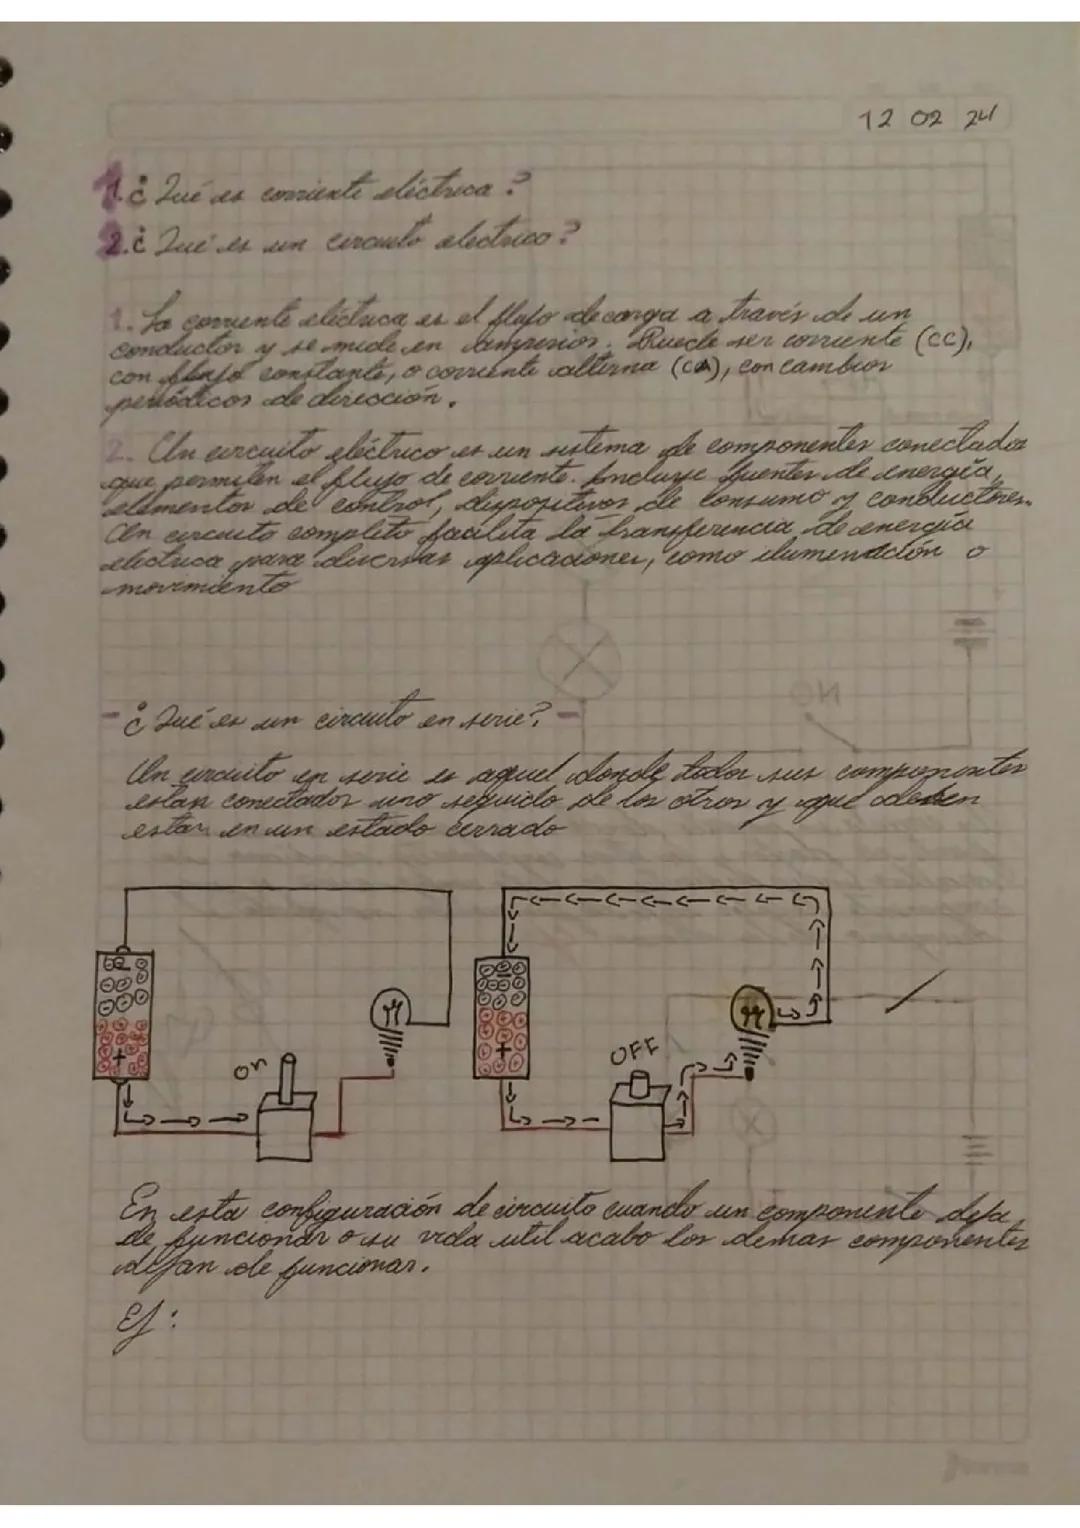 12 02 24
1. ¿Qué es corriente eléctrica?
2. ¿Qué es un circuito electrico?
1. La corriente eléctrica es el flujo de carga a través de un
conductor y se mide en amperios. Puede ser corriente (CC),
con flujo constante, o corriente alterna (CA), con cambios
periódicos de dirección.
2. Un circuito eléctrico es un sistema de componentes conectados
que permiten el flujo de corriente. Incluye fuentes de energía,
elementos de control, dispositivos de consumo y conductores.
Un circuito completo facilita la transferencia de energía
electrica para diversas aplicaciones, como ilumención o
movimiento
- ¿Qué es un circuito en serie? -
Un circuito en serie es aquel donde todos sus componentes
estan conectados uno seguido de los otros y que deben
estar en un estado cerrado
on
OFF
En esta configuración de circuito cuando un componente deja
de funcionar o su vida util acabo los demas componentes
dejan de funcionar.
Ej: